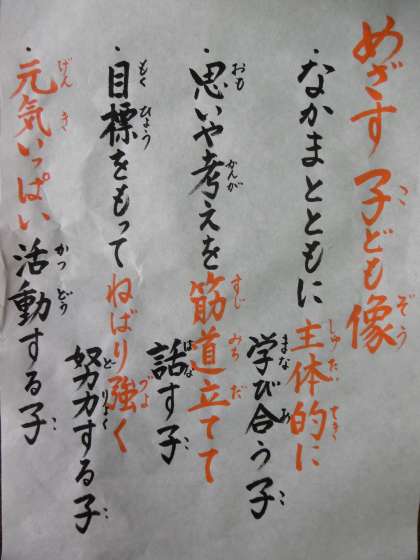 めざす子ども像
・なかまとともに主体的に
学び合う子
・思いや考えを筋道立てて
話す子
・目標をもってねばり強く
努力する子
・元気いっぱい活動する子